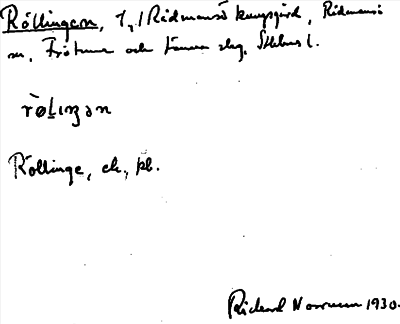 Röllingen, t./Rådmansö kungsgård, Rådmansö
sn, Frötuna och Länna skg. Sthlms l.
rø̀lɩŋən
Röllinge, ek., pb.
Rickard Norrman 1930.